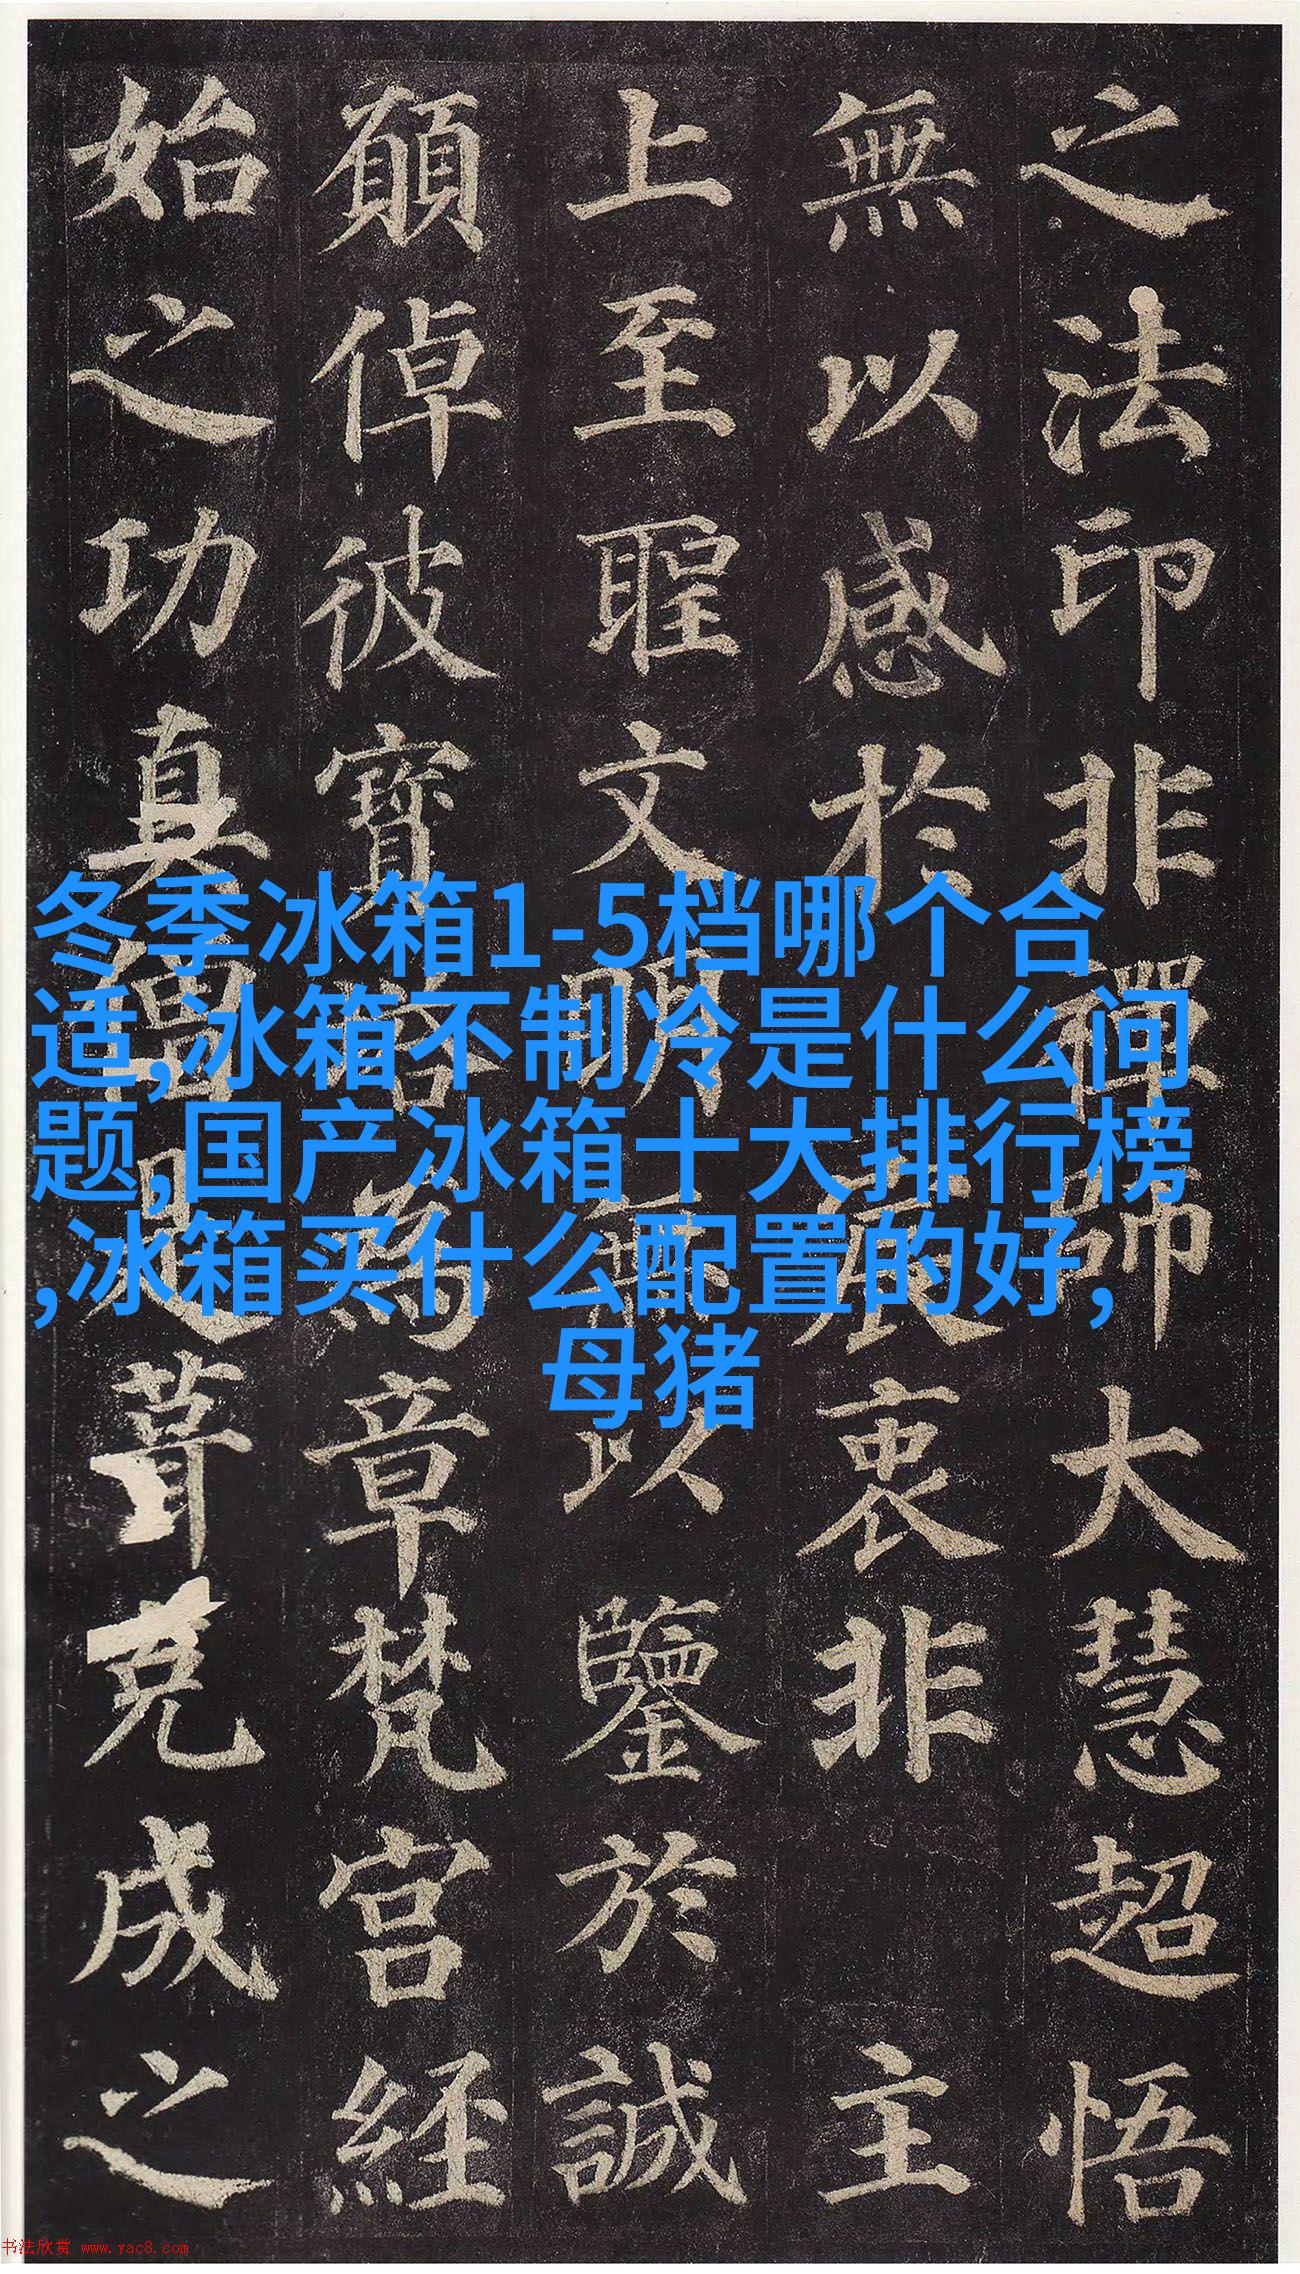 之法印非禪師大慧超悟
無以感於宸衷非 主
上至聖文明無以鑒於誠
願倬彼寶塔為章梵宮經
始之功真僧是葺克成之
冬季冰箱1-5档哪个合
适,冰箱不制冷是什么问
题,国产冰箱十大排行榜
,冰箱买什么配置的好,
母猪
书法欣赏 www.yac8.com